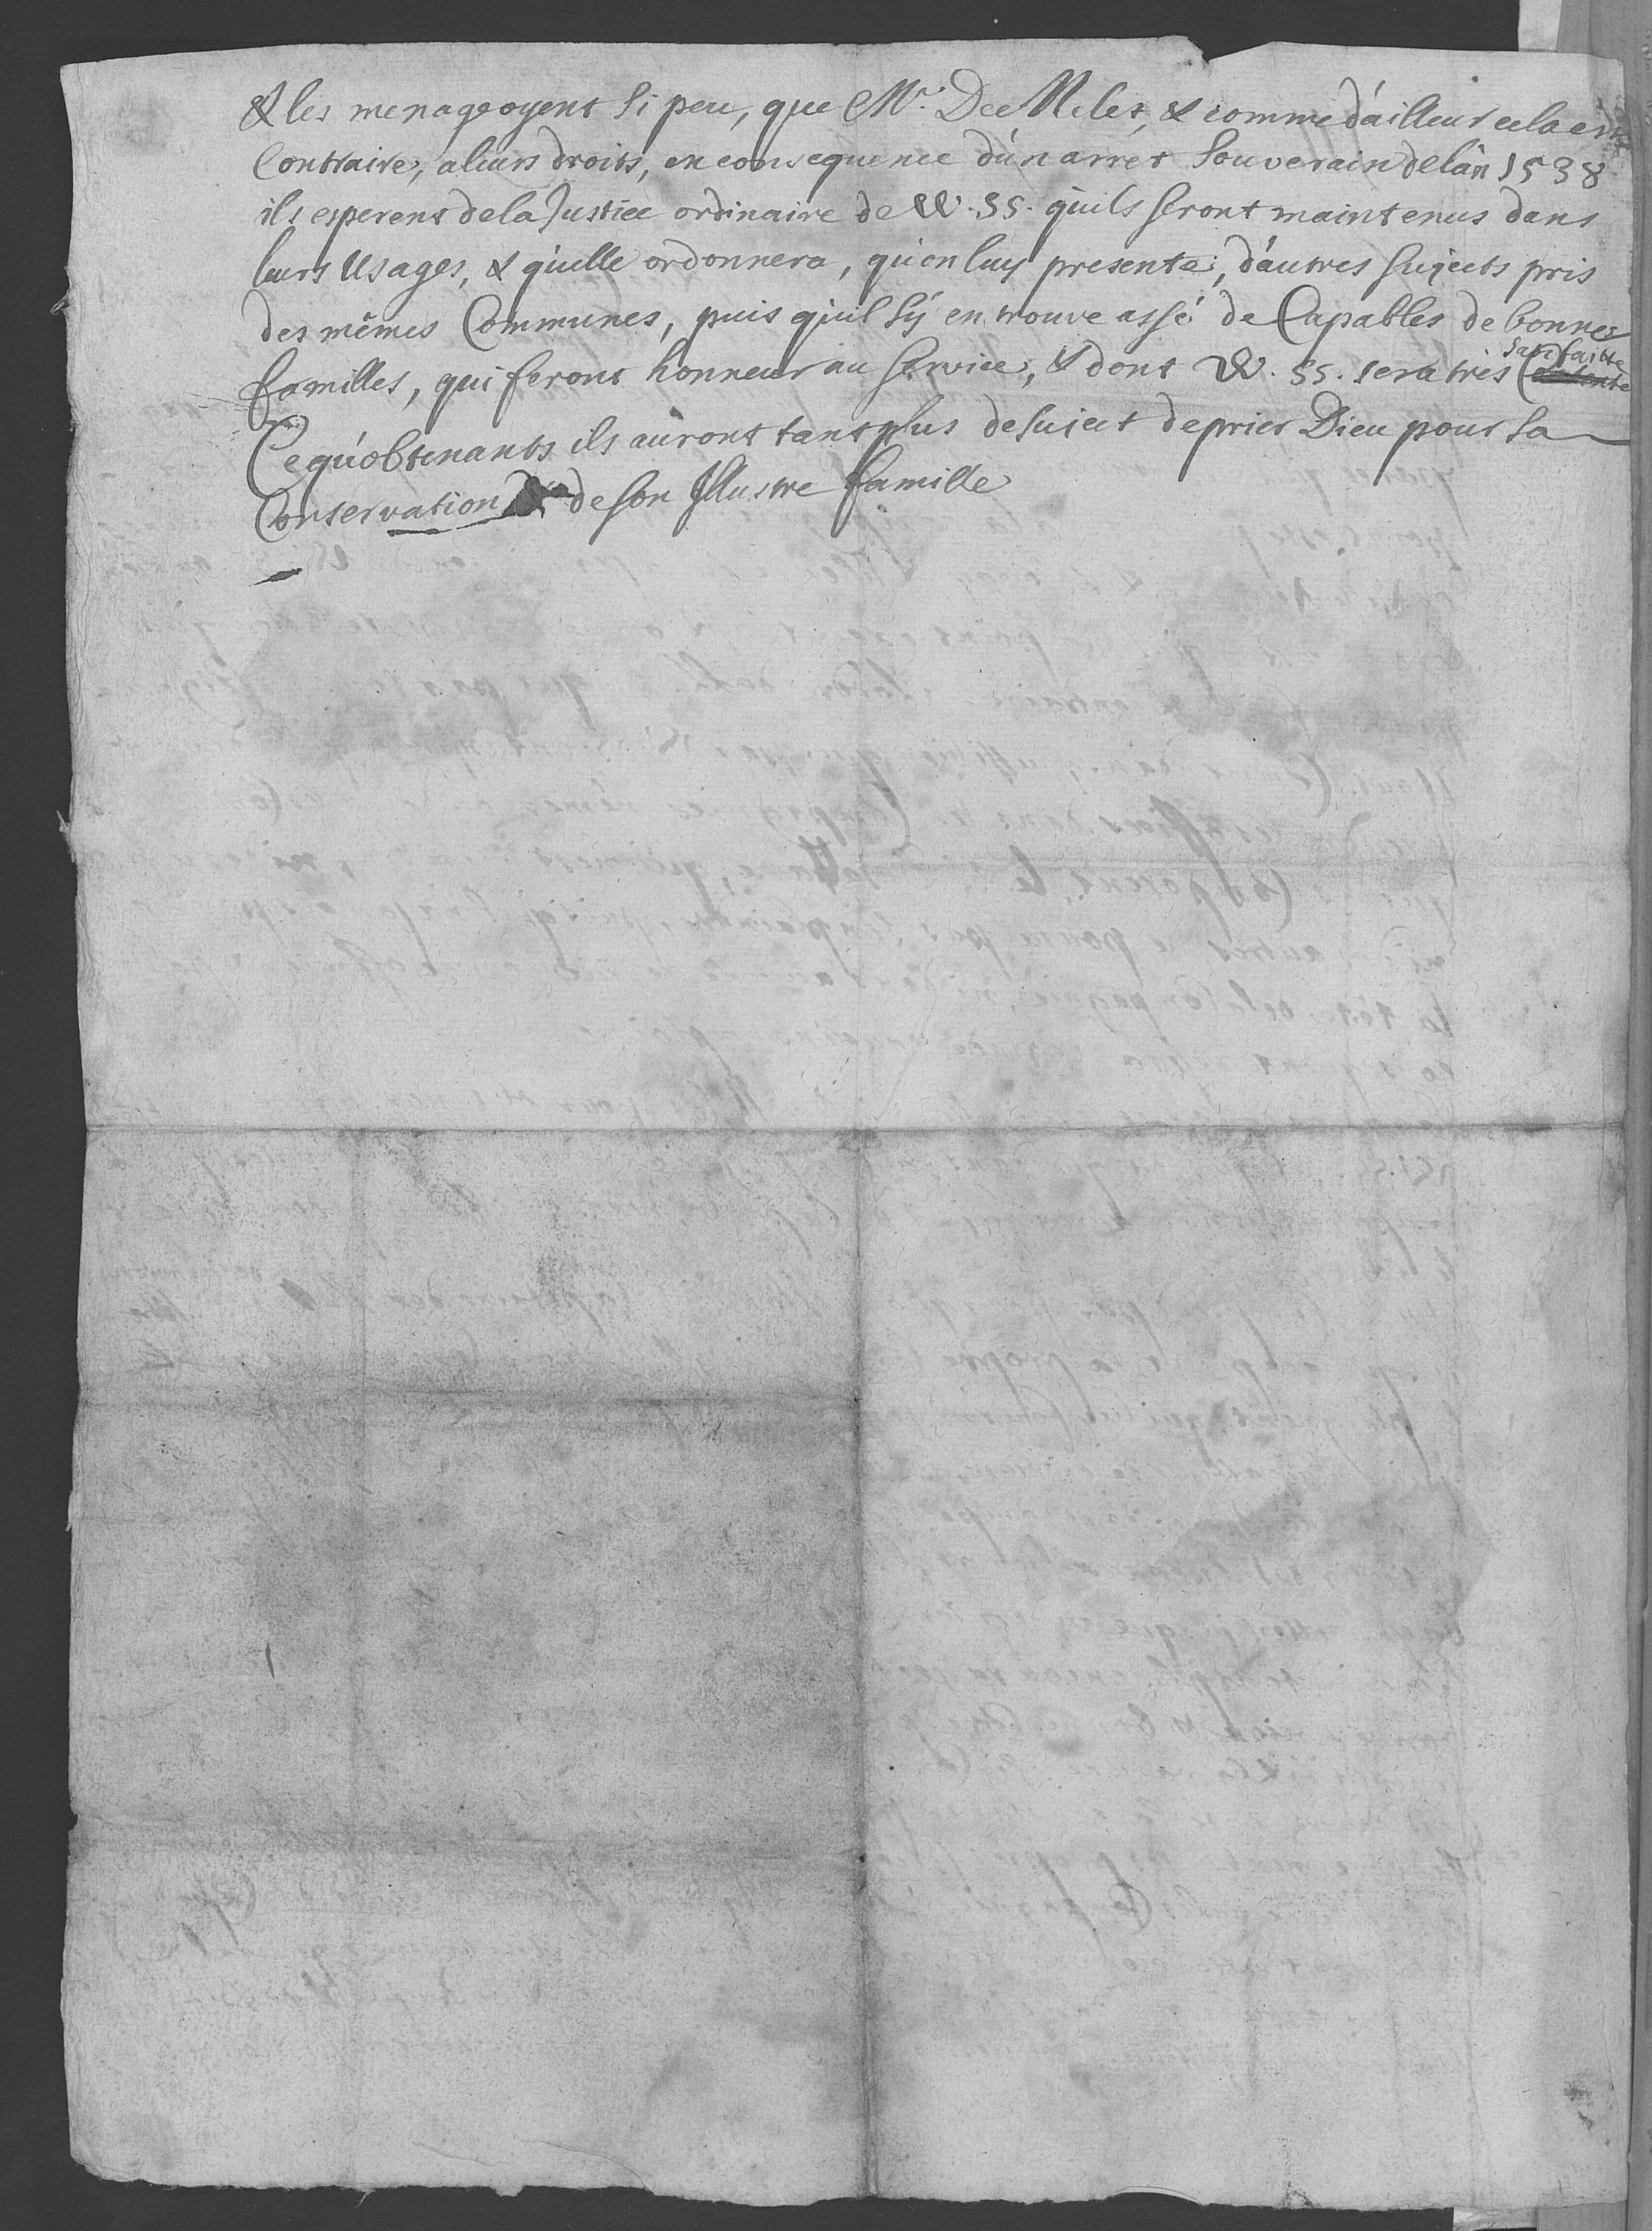 & les menageoyent si peu, que Mr. De Meles, & comme d'ailleur cela est
Contraire, a leurs droits, en consequence d'un arret Souverain de l'an 1538
ils esperent de la Justice ordinaire de V. SS. qu'ils seront maintenus dans
leurs Usages, & qu'elle ordonnera, qu'on luy presente, d'autres sujects pris
des mêmes Communes, puis qu'il s'y en trouve assé de Capables de bonnes
familles, qui feront honneur au Service, & dont V. SS. sera très satisfaitte
Ce qu'obtenants ils auront tant plus de suject de prier Dieu pour sa
Conservation & de son Illustre famille